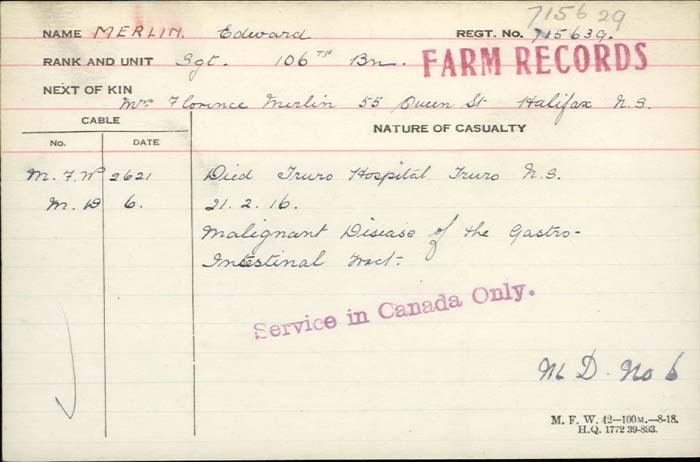 715629
NAME MERLIN. Edward REGT. No. 715639.
RANK AND UNIT Sgt. 106TH Bn.
FARM RECORDS
NEXT OF KIN Mrs Florence Merlin 55 Queen St Halifax N.S.
CABLE
No. DATE
NATURE OF CASUALTY
M.F.W 2621 Died Truro Hospital Truro N.S.
M.D 6. 21.2.16.
Malignant Disease of the Gastro-
Intestinal Tract.
Service in Canada Only.
M D. No 6
M. F. W. 42—100M.—8-18.
H.Q. 1772 39-893.